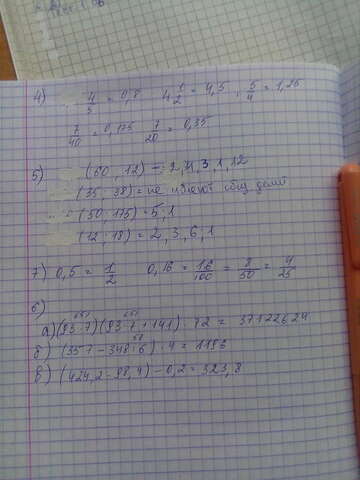 4) 4/5 = 0,8 4 1/2 = 4,5 , 5/4 = 1,25
7/40 = 0,175 7/20 = 0,35
5) (60, 12) = 2, 4, 3, 1, 12
(35; 38) = не имеют общ делит
(50, 175) = 5; 1
(12; 18) = 2, 3, 6, 1
7) 0,5 = 1/2 0,16 = 16/100 = 8/50 = 4/25
6)
а) (93·7)(93·7+141)·72 = 37122624
б) (351 - 348:6)·4 = 1186
в) (424,2 - 98,4) - 0,2 = 323,8